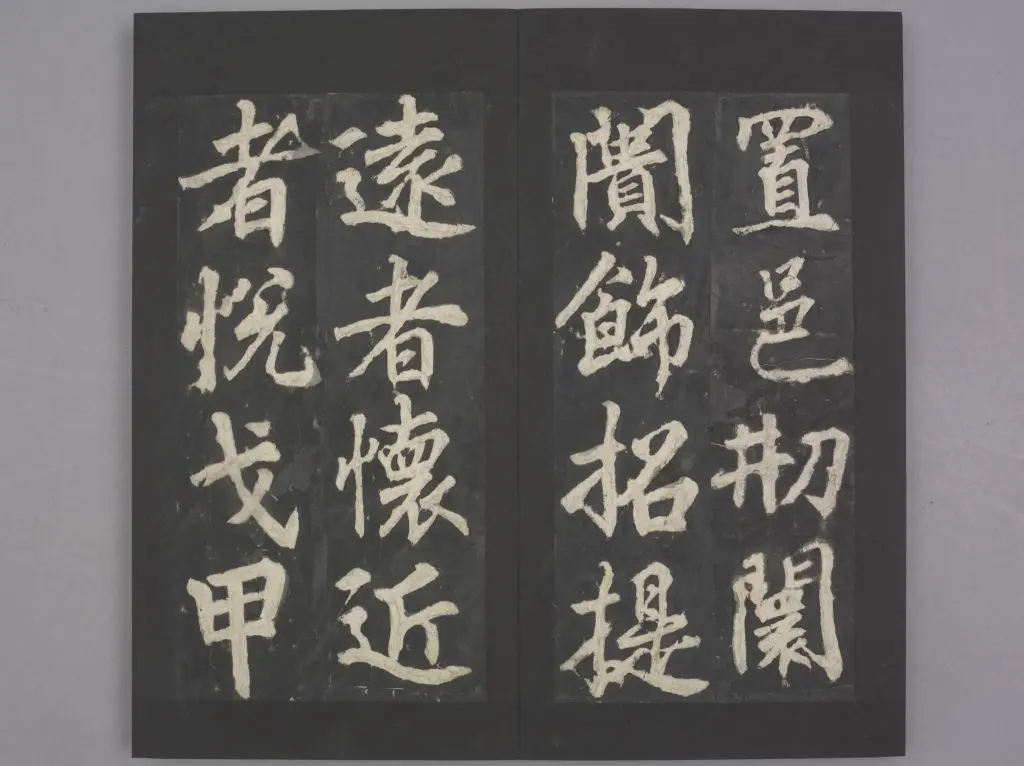 置邑刱闤
闠飾招提
遠者懷近
者悅戈甲